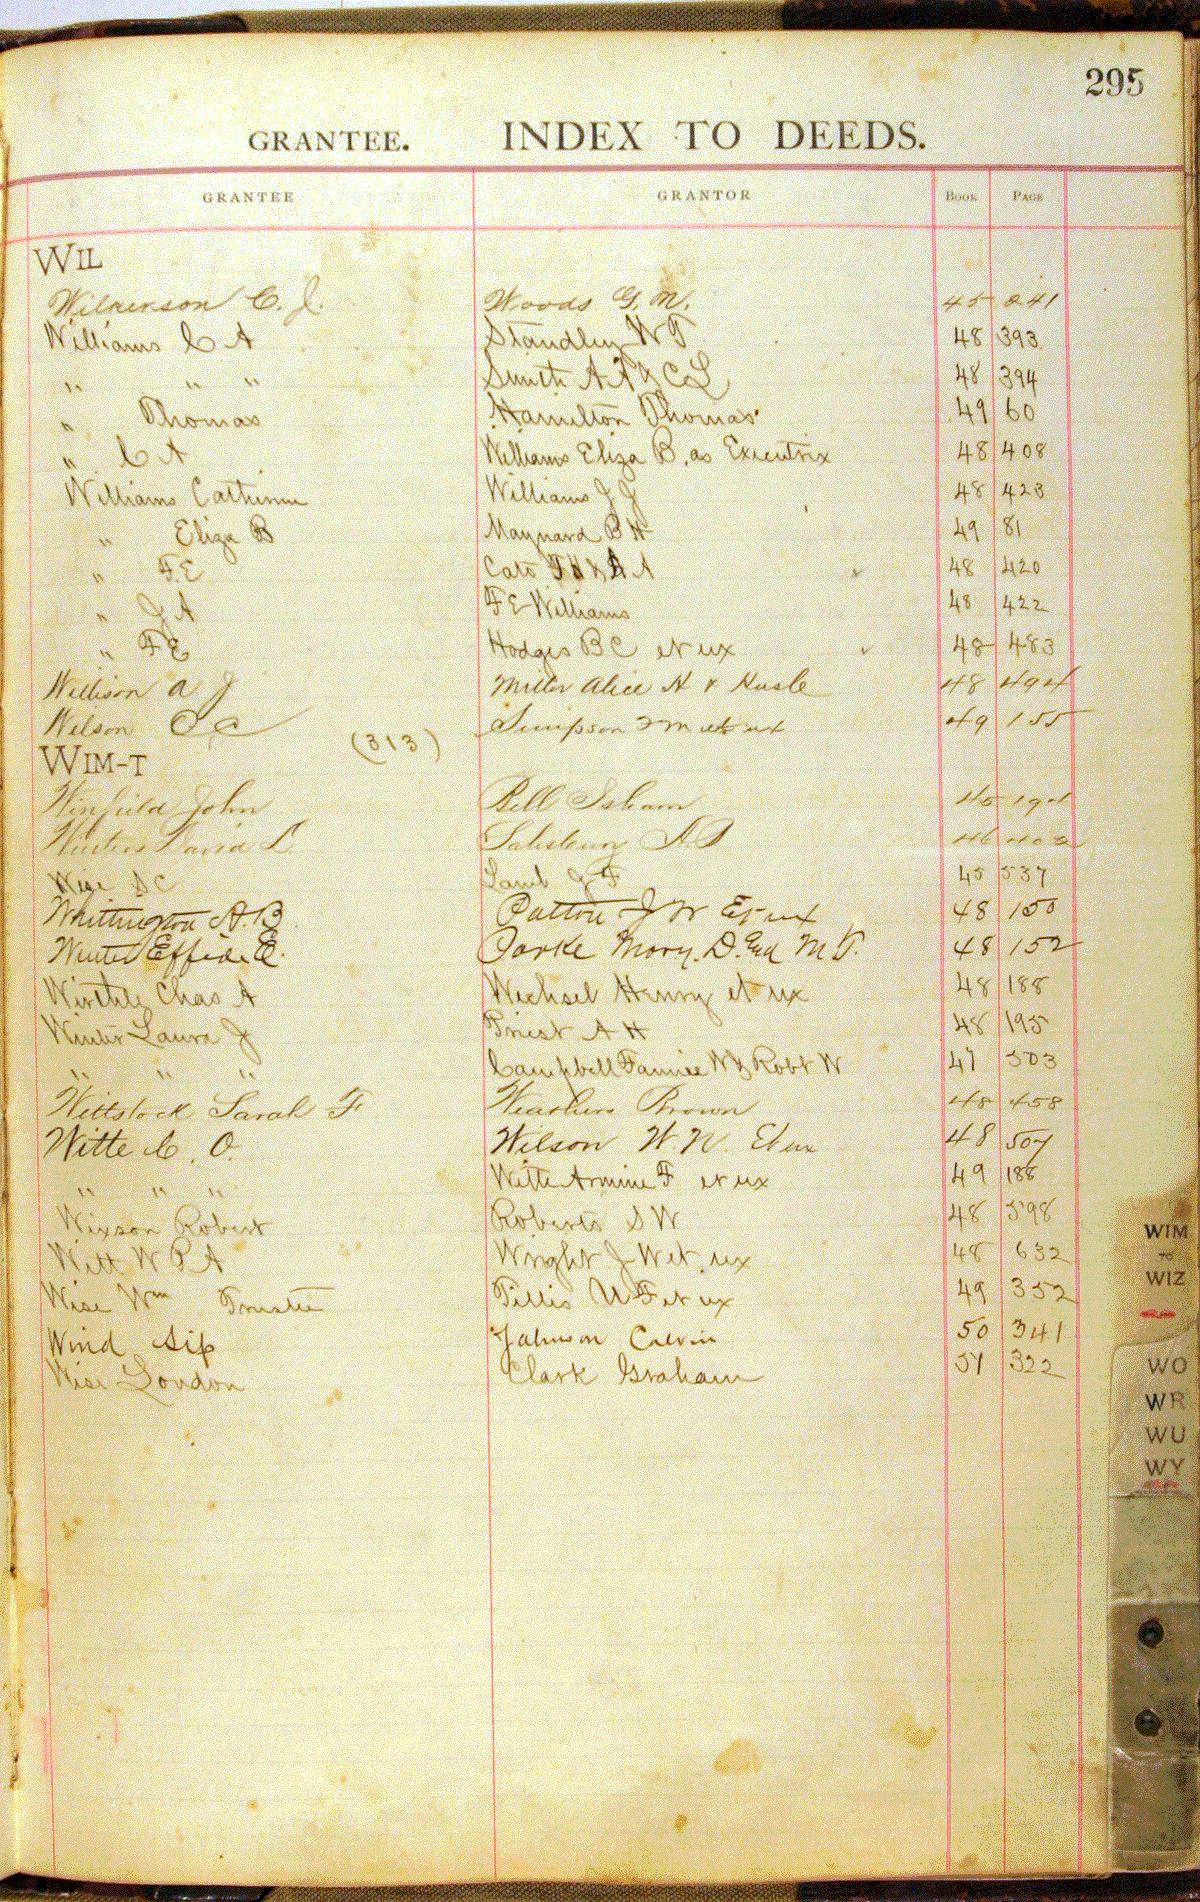 295
GRANTEE. INDEX TO DEEDS.
GRANTEE GRANTOR BOOK PAGE
WIL
Wilkinson C. J. Woods G. M. 45 241
Williams C A Standley W T 48 393
" " " Smith A A & C L 48 394
" Thomas Hamilton Thomas 49 60
" C A Williams Eliza B. as Executrix 48 408
Williams Catherine Williams J J 48 423
" Eliza B Maynard B H 49 81
" F. E Cato A 48 420
" J A F E Williams 48 422
" F E Hodges B C et ux 48 483
Willison A J Miller Alice H & Husb 48 494
Wilson C C Simpson et ux 49 155
(313)
WIM-T
Winfield John Bell Isham 45 191
Winters David L Salisbury 46 402
Wise S C Lamb J F 45 537
Whittington A. B. Patton J W Et ux 48 150
Winter Effie E. Parke Mary. D. End M T. 48 152
Wirthly Chas A Wechsel Henry et ux 48 188
Winter Laura J Priest A H 48 195
" " " Campbell Fannie W & Robt W 47 503
Wittstock Sarah F Weathers Brown 48 458
Witte C. O. Wilson W W. Et ux 48 507
" " " Witte Armine F et ux 49 188
Wixson Robert Roberts S W 48 598
Witt W P A Wright J W et ux 48 632
Wise Wm Trustee Tillis W F et ux 49 352
Wind Sip Johnson Calvin 50 341
Wise London Clark Graham 51 322
WIM
TO
WIZ
WO
WR
WU
WY